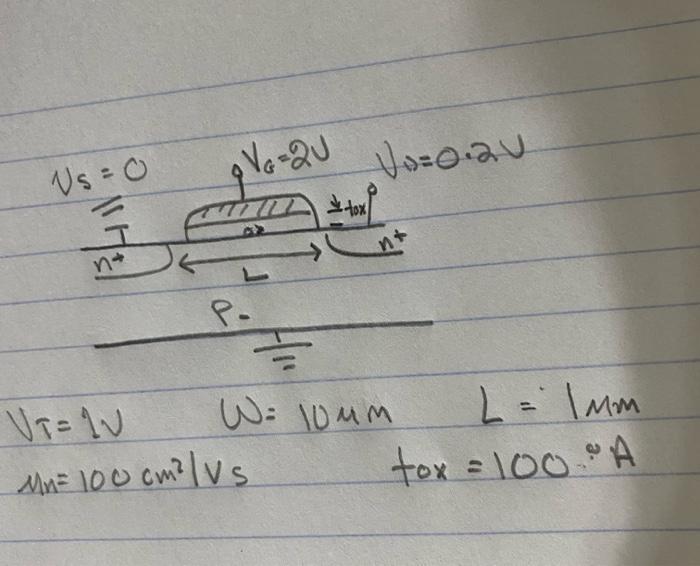 Vs = 0 VG=2V VD=0.2V
tox
ox
n+ n+
L
P-
VT=1V W= 10 μm L = 1μm
μn= 100 cm²/Vs tox = 100 °A